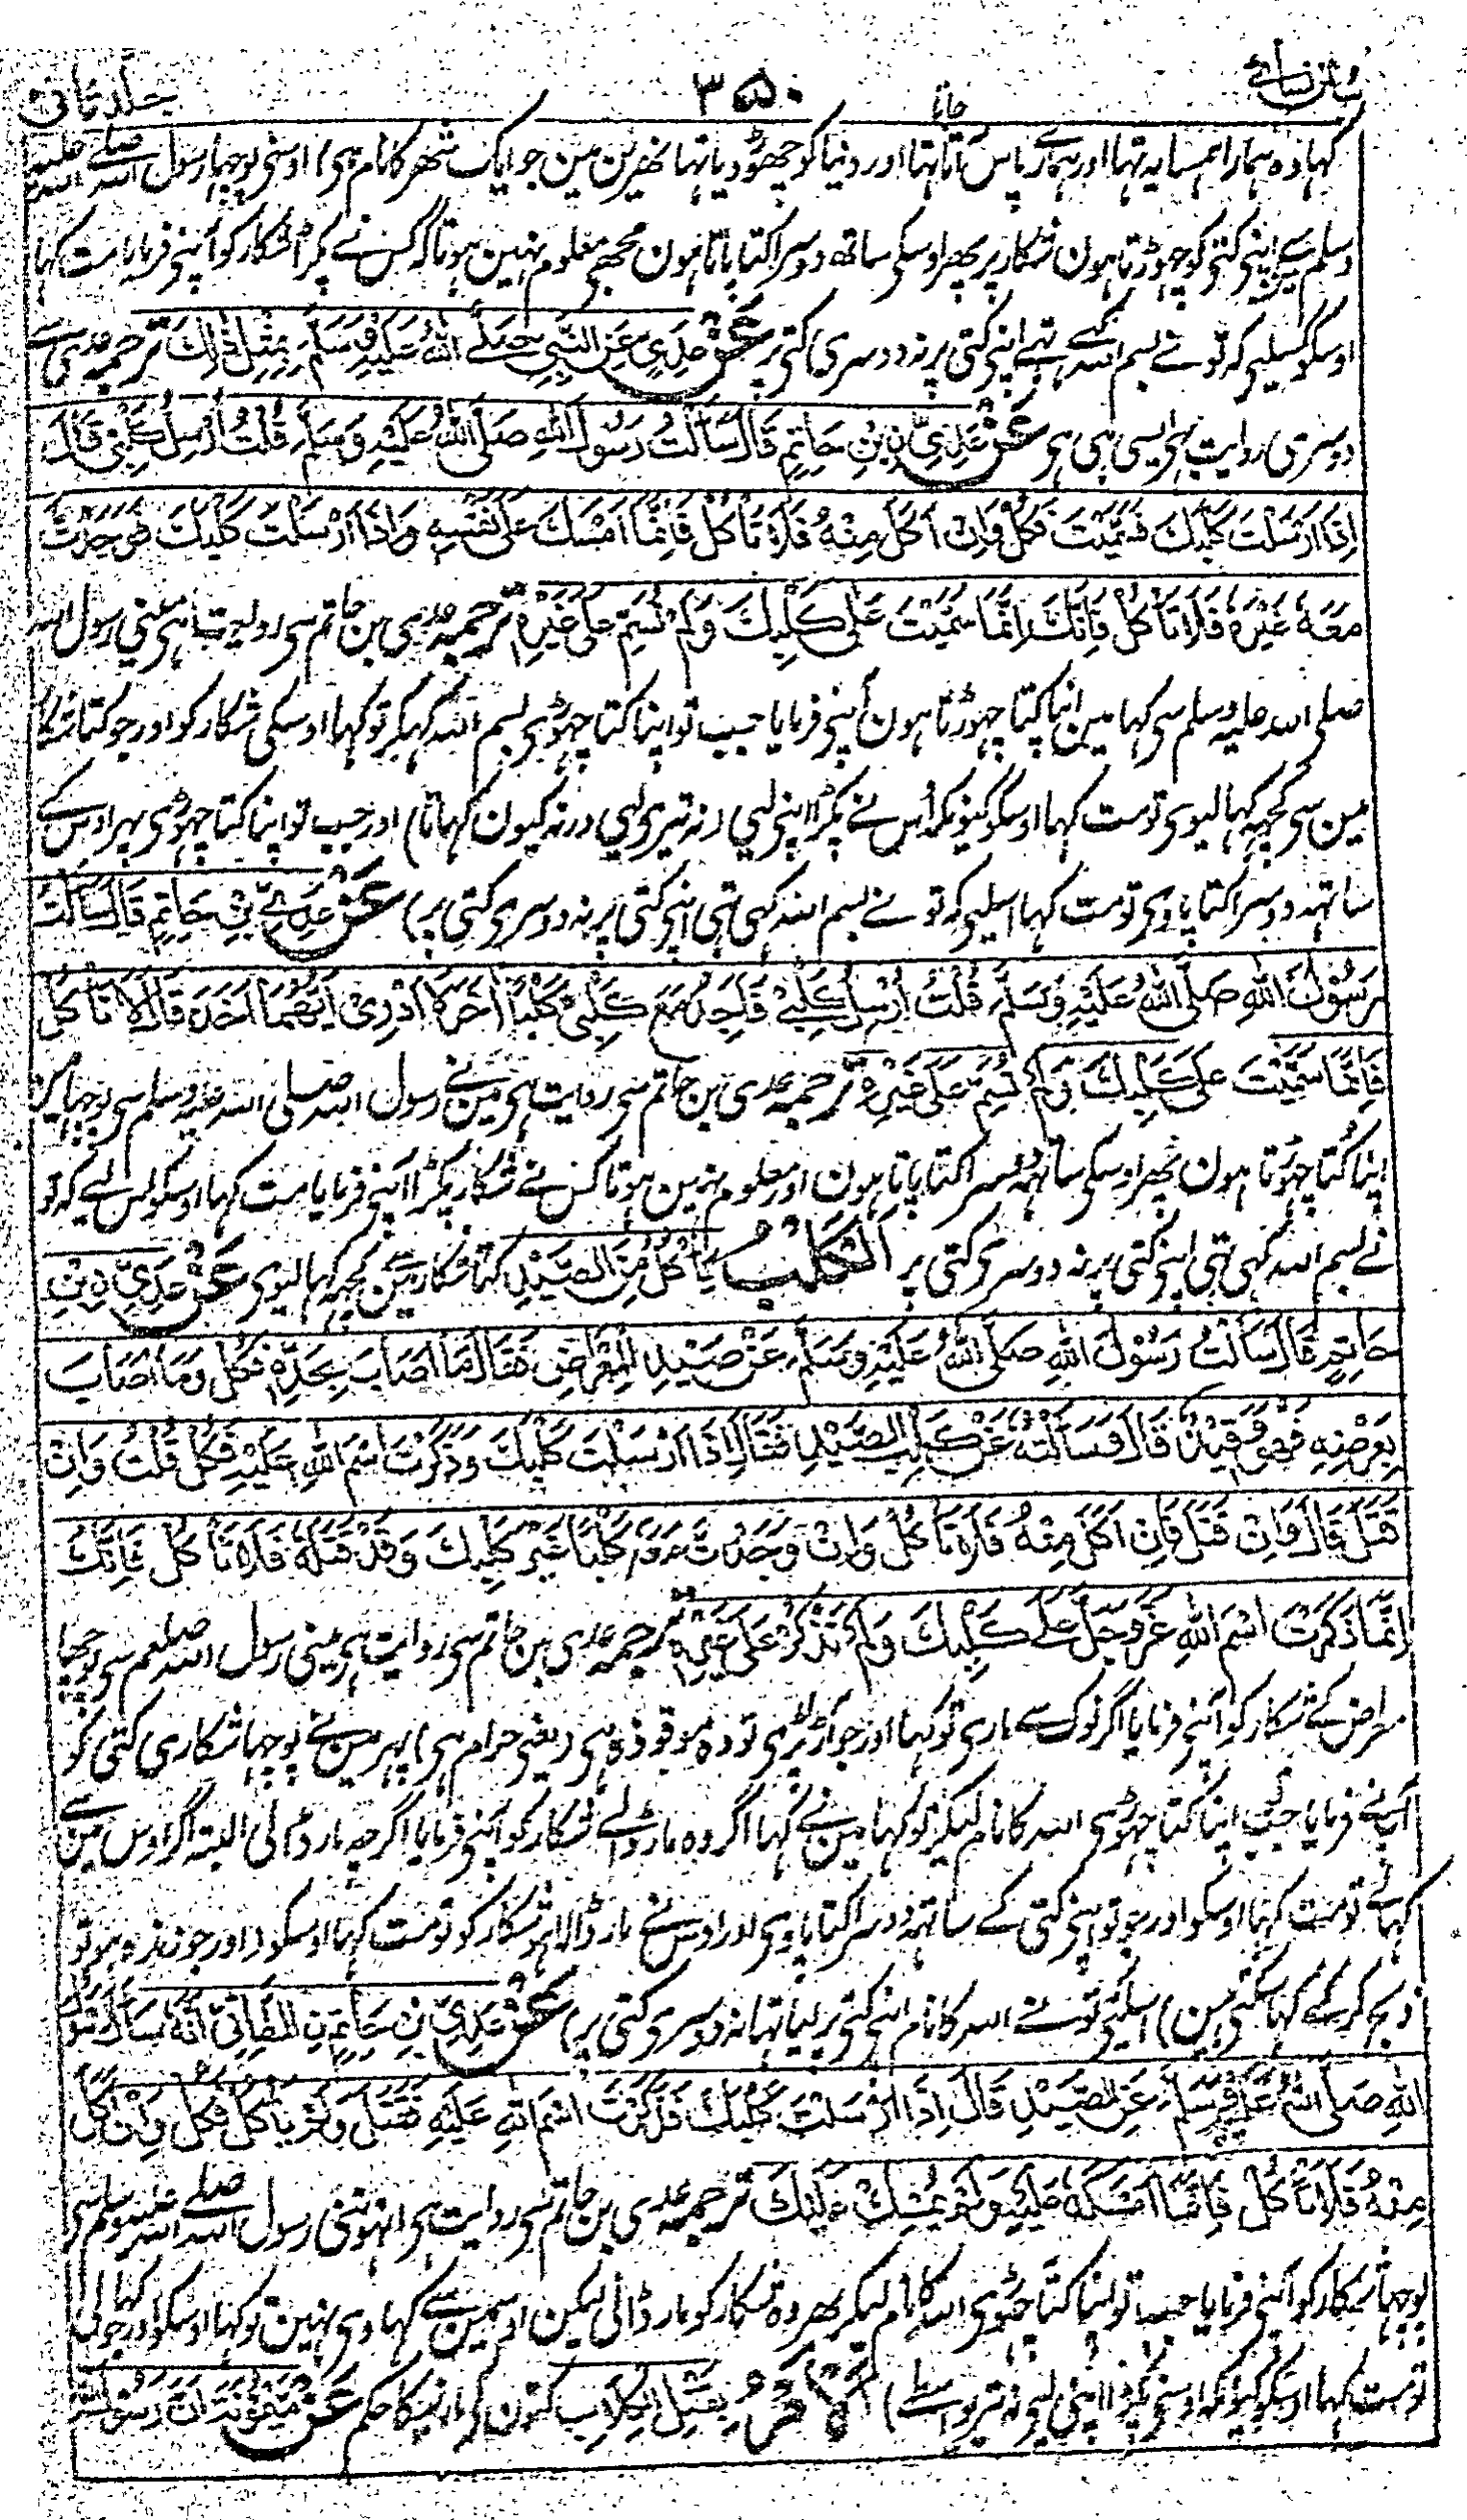 سنن نسائے ۳۵۰ جلد ثانی
کہا وہ ہمارا ہمسایہ تہا اور ہمارے پاس آتا جاتا تہا اور دنیا کو چھوڑ دیا تہا نہرین مین جو ایک شہر کا نام ہی) اوسنی پوچہا رسول اللہ صلے اللہ علیہ
وسلم سے مین اپنی کتی کو چہوڑتا ہون شکار پر پھر اوسکی ساتھ دوسرا کتا پاتا ہون مجھے معلوم نہین ہوتا کہ کس نے پکڑا شکار کو آپنی فرمایا مت کہا
اوسکو اسلیے کہ تو نے بسم اللہ کہے تہے اپنی کتی پر نہ دوسری کتی پر عَنْ عَدِيٍّ عَنِ النَّبِيِّ صَلَّے اللهُ عَلَيْهِ وَسَلَّمَ بِمِثْلِ ذٰلِكَ ترجمہ عدی سے
دوسری روایت بہی ایسی ہی ہی عَنْ عَدِيِّ بْنِ حَاتِمٍ قَالَ سَأَلْتُ رَسُوْلَ اللهِ صَلَّى اللهُ عَلَيْهِ وَسَلَّمَ قُلْتُ أُرْسِلُ كَلْبِيْ قَالَ
اِذَا اَرْسَلْتَ كَلْبَكَ فَسَمَّيْتَ فَكُلْ وَاِنْ اَكَلَ مِنْهُ فَلَا تَأْكُلْ فَاِنَّمَا اَمْسَكَ عَلٰى نَفْسِهٖ وَاِذَا اَرْسَلْتَ كَلْبَكَ فَوَجَدْتَ
مَعَهٗ غَيْرَهٗ فَلَا تَأْكُلْ فَاِنَّكَ اِنَّمَا سَمَّيْتَ عَلٰى كَلْبِكَ وَلَمْ تُسَمِّ عَلٰى غَيْرِهٖ ترجمہ عدی بن حاتم سی روایت ہی مینی رسول اللہ
صلی اللہ علیہ وسلم سی کہا مین اپنا کتا چہوڑتا ہون آپنی فرمایا جب تو اپنا کتا چہوڑی بسم اللہ کہکر تو کہا اوسکی شکار کو اور جو کتا شکار
مین سی کچہہ کہا لیوی تو مت کہا اوسکو کیونکہ اُس نے پکڑا اپنی لیی (نہ تیری لیی ورنہ کیون کہاتا) اور جب تو اپنا کتا چہوڑی پہر اوس کے
ساتہہ دوسرا کتا پاوی تو مت کہا اسلیے کہ تو نے بسم اللہ کہی تہی اپنی کتی پر نہ دوسری کتی پر) عَنْ عَدِيِّ بْنِ حَاتِمٍ قَالَ سَأَلْتُ
رَسُوْلَ اللهِ صَلَّى اللهُ عَلَيْهِ وَسَلَّمَ قُلْتُ اُرْسِلُ كَلْبِيْ فَاَجِدُ مَعَ كَلْبِيْ كَلْبًا اٰخَرَ لَا اَدْرِيْ اَيُّهُمَا اَخَذَ قَالَ لَا تَأْكُلْ
فَاِنَّمَا سَمَّيْتَ عَلٰى كَلْبِكَ وَلَمْ تُسَمِّ عَلٰى غَيْرِهٖ ترجمہ عدی بن حاتم سی روایت ہی مین نے رسول اللہ صلی اللہ علیہ وسلم سی پوچہا مین
اپنا کتا چہوڑتا ہون پھر اوسکی ساتہہ دوسرا کتا پاتا ہون اور معلوم نہین ہوتا کس نے شکار پکڑا آپنی فرمایا مت کہا اوسکو اس لیے کہ تو
نے بسم اللہ کہی تہی اپنی کتی پر نہ دوسری کتی پر اَلْكَلْبُ يَأْكُلُ مِنَ الصَّيْدِ کتا شکار مین سے کچہہ کہا لیوی عَنْ عَدِيِّ بْنِ
حَاتِمٍ قَالَ سَأَلْتُ رَسُوْلَ اللهِ صَلَّى اللهُ عَلَيْهِ وَسَلَّمَ عَنْ صَيْدِ الْمِعْرَاضِ فَقَالَ مَا اَصَابَ بِحَدِّهٖ فَكُلْ وَمَا اَصَابَ
بِعَرْضِهٖ فَهُوَ وَقِيْذٌ قَالَ وَسَأَلْتُهٗ عَنْ كَلْبِ الصَّيْدِ فَقَالَ اِذَا اَرْسَلْتَ كَلْبَكَ وَذَكَرْتَ اسْمَ اللهِ عَلَيْهِ فَكُلْ قُلْتُ وَاِنْ
قَتَلَ قَالَ وَاِنْ قَتَلَ فَاِنْ اَكَلَ مِنْهُ فَلَا تَأْكُلْ وَاِنْ وَجَدْتَ مَعَهٗ كَلْبًا غَيْرَ كَلْبِكَ وَقَدْ قَتَلَهٗ فَلَا تَأْكُلْ فَاِنَّكَ
اِنَّمَا ذَكَرْتَ اسْمَ اللهِ عَزَّ وَجَلَّ عَلٰى كَلْبِكَ وَلَمْ تَذْكُرْ عَلٰى غَيْرِهٖ ترجمہ عدی بن حاتم سی روایت ہی مینی رسول اللہ صلعم سی پوچہا
معراض کے شکار کو آپنی فرمایا اگر نوک سے ماری تو کہا اور جو آڑ پڑی تو وہ موقوذہ ہی (یعنی حرام ہی) پہر مین نے پوچہا شکاری کتی کو
آپنے فرمایا جب اپنا کتا چہوڑی اللہ کا نام لیکر تو کہا مین نے کہا اگر وہ مار ڈالے شکار کو آپنی فرمایا اگرچہ مار ڈالی البتہ اگر اوس مین سے
کہالے تو مت کہا اوسکو اور جو تو اپنی کتی کے ساتہہ دوسرا کتا پاوی اور اوس نے مار ڈالا ہو شکار کو تو مت کہا اوسکو (اور جو زندہ ہو تو
ذبح کر کے کہا سکتی ہین) اسلیے تونے اللہ کا نام اپنی کتی پر لیا تہا نہ دوسری کتی پر) عَنْ عَدِيِّ بْنِ حَاتِمٍ الطَّائِيِّ اَنَّهٗ سَأَلَ رَسُوْلَ
اللهِ صَلَّى اللهُ عَلَيْهِ وَسَلَّمَ عَنِ الصَّيْدِ قَالَ اِذَا اَرْسَلْتَ كَلْبَكَ فَذَكَرْتَ اسْمَ اللهِ عَلَيْهِ فَقَتَلَ وَلَمْ يَأْكُلْ فَكُلْ وَاِنْ اَكَلَ
مِنْهُ فَلَا تَأْكُلْ فَاِنَّمَا اَمْسَكَهٗ عَلَيْهِ وَلَمْ يُمْسِكْ عَلَيْكَ ترجمہ عدی بن حاتم سی روایت ہی انہونی رسول اللہ صلے اللہ علیہ وسلم سی
پوچہا شکار کو آپنی فرمایا جب تو اپنا کتا چہوڑی اللہ کا نام لیکر پھر وہ شکار کو مار ڈالی لیکن اوسمین سے کہاوی نہین تو کہا اوسکو اور جو کہا لی
تو مت کہا اوسکو کیونکہ اوسنی پکڑا اپنی لیی نہ تیری واسطے) اَلْاَمْرُ بِقَتْلِ الْكِلَابِ کتون کو مارنیکا حکم عَنْ مَيْمُوْنَةَ اَنَّ رَسُوْلَ اللهِ